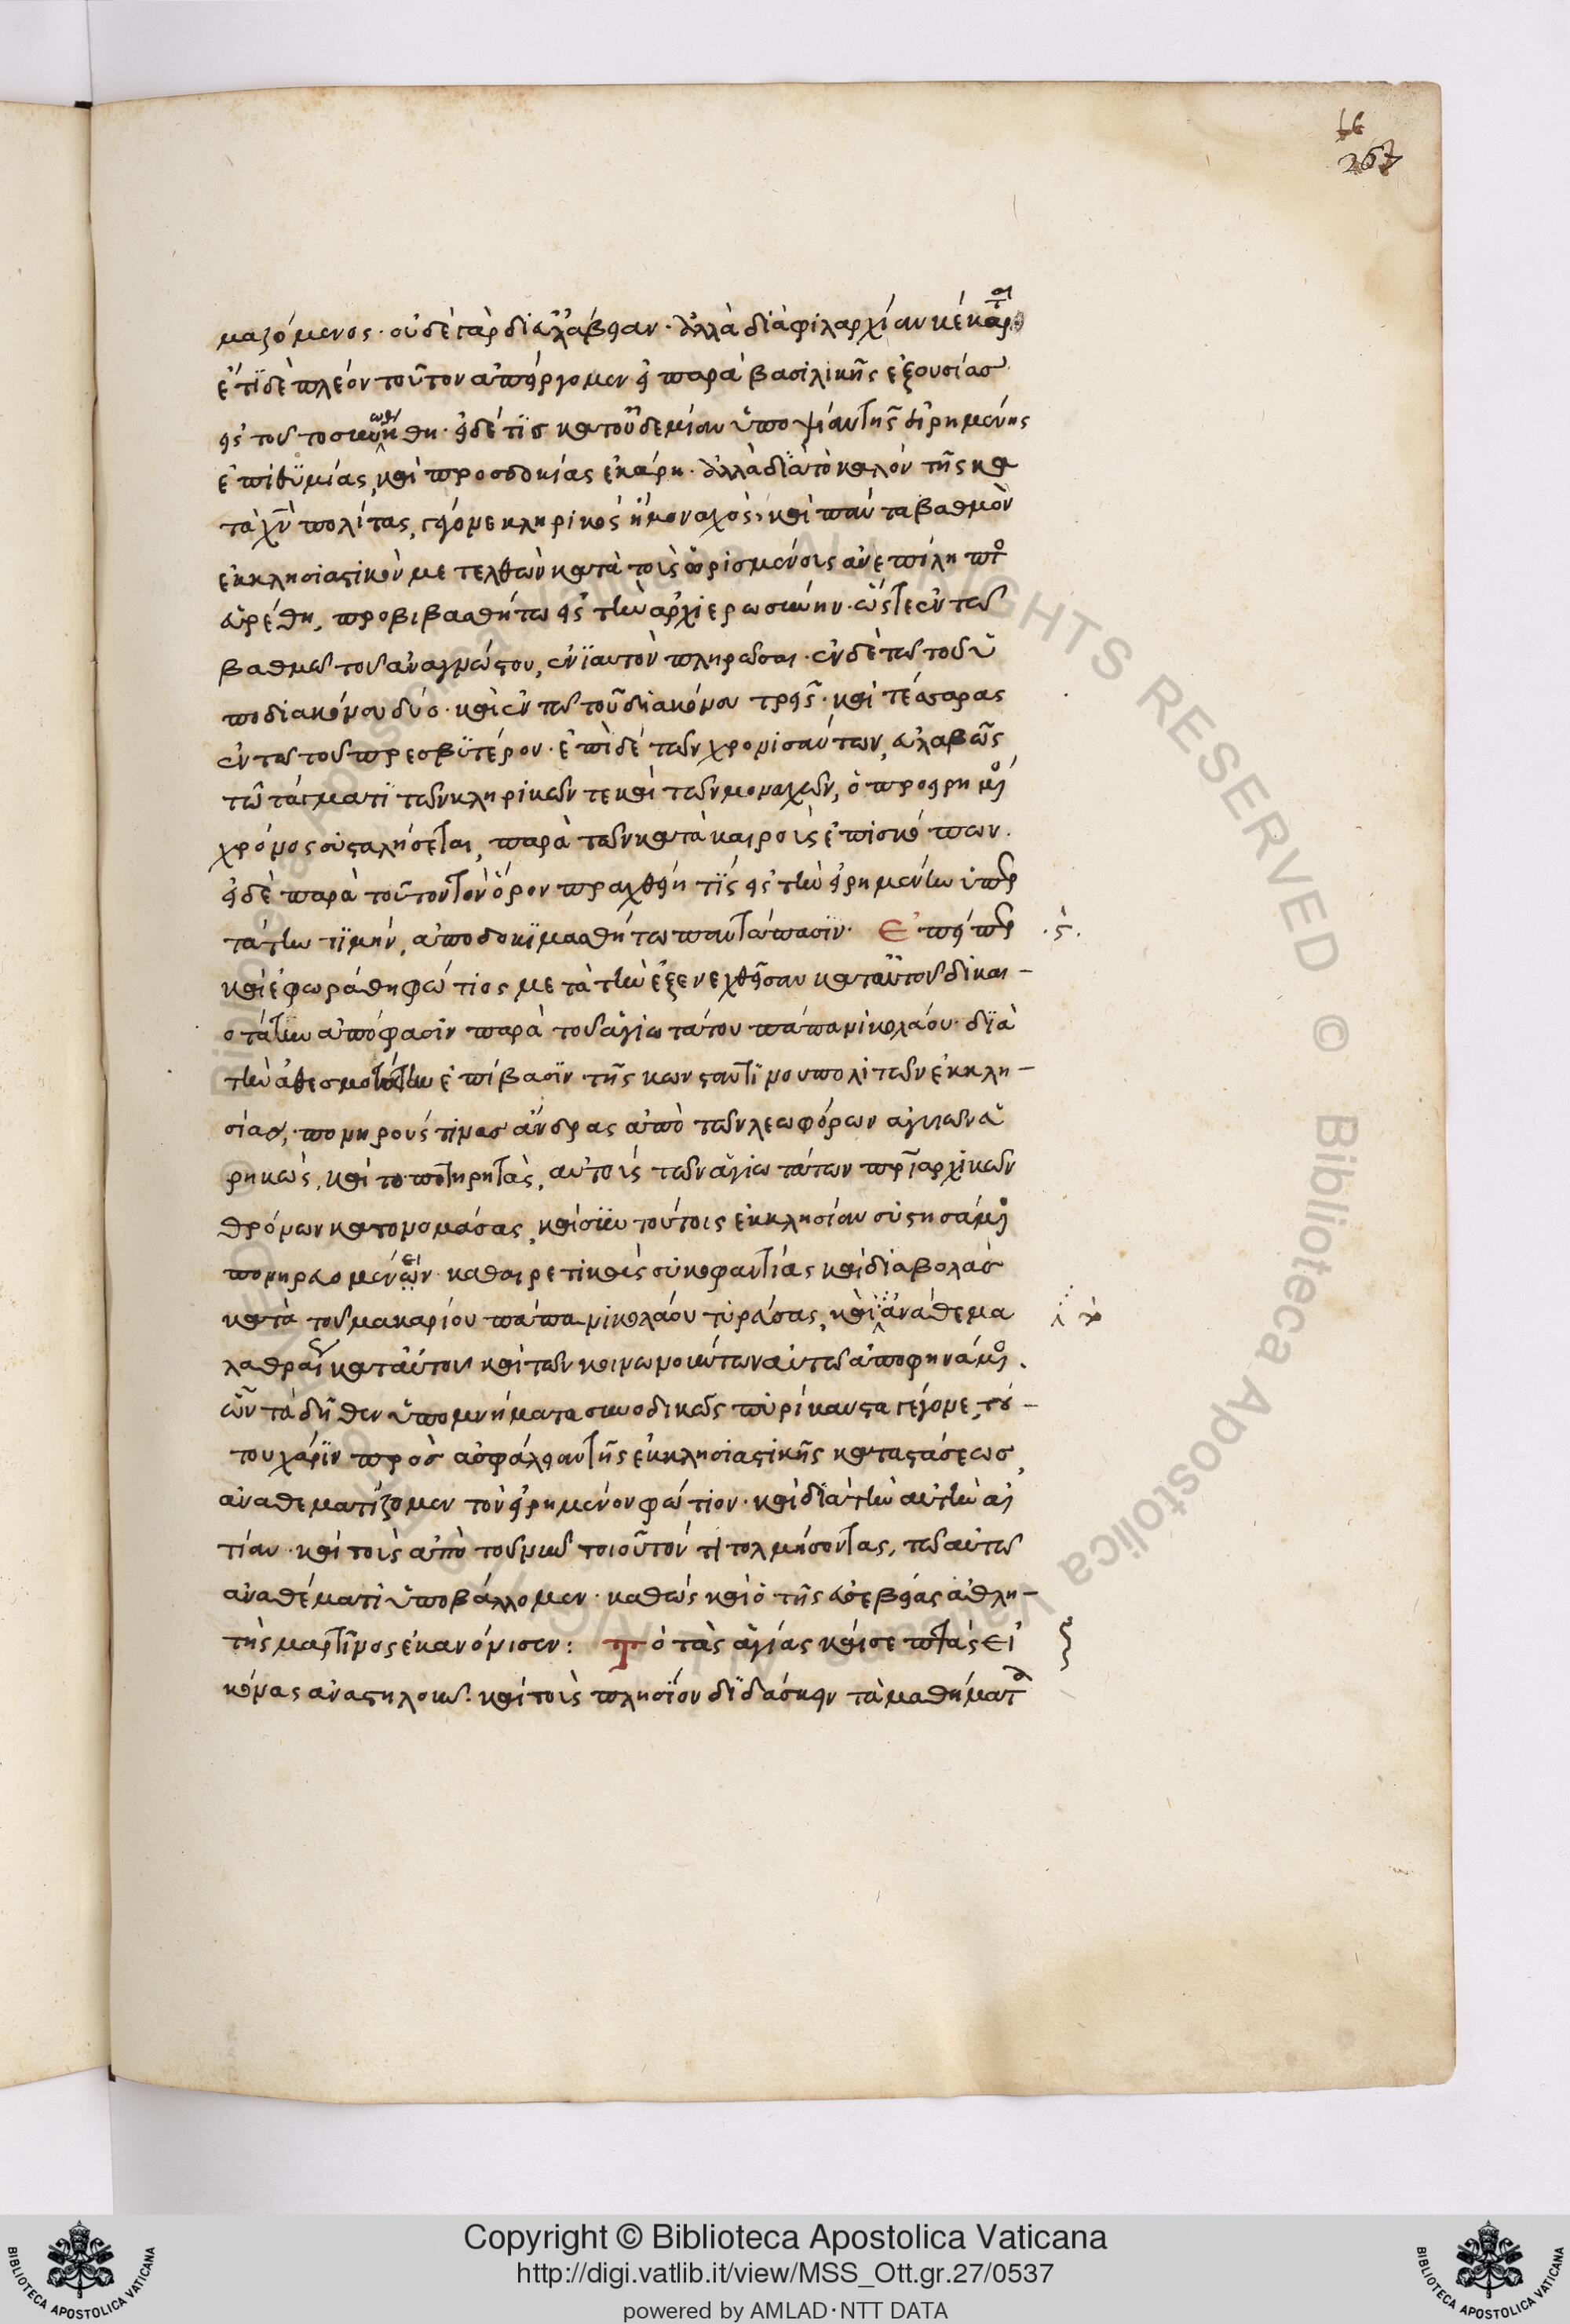 16
267
μαζόμενος· οὐδὲ γὰρ δι' εὐλάβειαν· ἀλλὰ διὰ φιλαρχίαν κέκαρται
ἔτι δὲ πλέον τοῦτον ἀπείργομεν εἰ παρὰ βασιλικῆς ἐξουσίας
εἰς τοῦτο συνωθήθη· εἰ δέ τις κατ' οὐδεμίαν ὑποψίαν τῆς εἰρημένης
ἐπιθυμίας, καὶ προσδοκίας ἐκάρη· ἀλλὰ διὰ τὸ καλὸν τῆς κα
τὰ χν πολίτας, γένομε κληρικὸς ἢ μοναχός· καὶ πάντα βαθμὸν
ἐκκλησιαστικὸν μετελθὼν κατὰ τοὺς ὡρισμένους ἀνεπίληπτος
εὑρέθη, προβιβασθήτω εἰς τὴν ἀρχιερωσύνην· ὥστε ἐν τῶ
βαθμῶ τοῦ ἀναγνώστου, ἐνιαυτὸν πληρῶσαι· ἐν δὲ τῶ τοῦ ὑ
ποδιακόνου δύο· καὶ ἐν τῶ τοῦ διακόνου τρεῖς· καὶ τέσσαρας
ἐν τῶ τοῦ πρεσβυτέρου· ἐπὶ δὲ τῶν χρονισάντων, εὐλαβῶς
τῶ τάγματι τῶν κληρικῶν τε καὶ τῶν μοναχῶν, ὁ προειρημένος
χρόνος συσταλήσεται, παρὰ τῶν κατὰ καιροὺς ἐπισκόπων.
εἰ δὲ παρὰ τοῦτον τὸν ὅρον πραχθείη τις εἰς τὴν εἰρημένην ὑπερ
τάτην τιμήν, ἀποδοκιμασθήτω παντάπασιν· Ἐπείπερ
·ς·
καὶ ἐφωράθη φώτιος μετὰ τὴν ἐξενεχθεῖσαν κατ' αὐτοῦ δικαι-
οτάτην ἀπόφασιν παρὰ τοῦ ἁγιωτάτου πάπα νικολάου· διὰ
τὴν ἀθεσμοτάτην ἐπίβασιν τῆς κωνσταντινουπολιτῶν ἐκκλη-
σίας, πονηρούς τινας ἄνδρας ἀπὸ τῶν λεωφόρων ἀγυιῶν εὑ
ρηκώς, καὶ τοποτηρητὰς, αὐτοὺς τῶν ἁγιωτάτων πριαρχικῶν
θρόνων κατονομάσας, καὶ σὺν τούτοις ἐκκλησίαν συστησάμενος
πονηρευομένων· καθαιρετικὰς συκοφαντίας καὶ διαβολὰς
κατὰ τοῦ μακαρίου πάπα νικολάου τυρεύσας, καὶ ἀνάθεμα
λαθραῖον κατ' αὐτοῦ καὶ τῶν κοινωνούντων αὐτῶ ἀποφηνάμενος.
ὧν τὰ δῆθεν ὑπομνήματα συνοδικῶς πυρίκαυστα γέγονε, τού-
του χάριν πρὸς ἀσφάλειαν τῆς ἐκκλησιαστικῆς καταστάσεως,
ἀναθεματίζομεν τὸν εἰρημένον φώτιον· καὶ διὰ τὴν αὐτὴν αἰ
τίαν· καὶ τοὺς ἀπὸ τοῦ νῦν τοιοῦτόν τι τολμήσοντας, τῶ αὐτῶ
ἀναθέματι ὑποβάλλομεν· καθὼς καὶ ὁ τῆς εὐσεβείας ἀθλη-
τὴς μαρτῖνος ἐκανόνισεν: Τὸ τὰς ἁγίας καὶ σεπτὰς εἰ
κόνας ἀναστηλοῦν· καὶ τοὺς πλησίον διδάσκειν τὰ μαθήματα
Copyright © Biblioteca Apostolica Vaticana
http://digi.vatlib.it/view/MSS_Ott.gr.27/0537
powered by AMLAD·NTT DATA
BIBLIOTECA APOSTOLICA VATICANA
BIBLIOTECA APOSTOLICA VATICANA